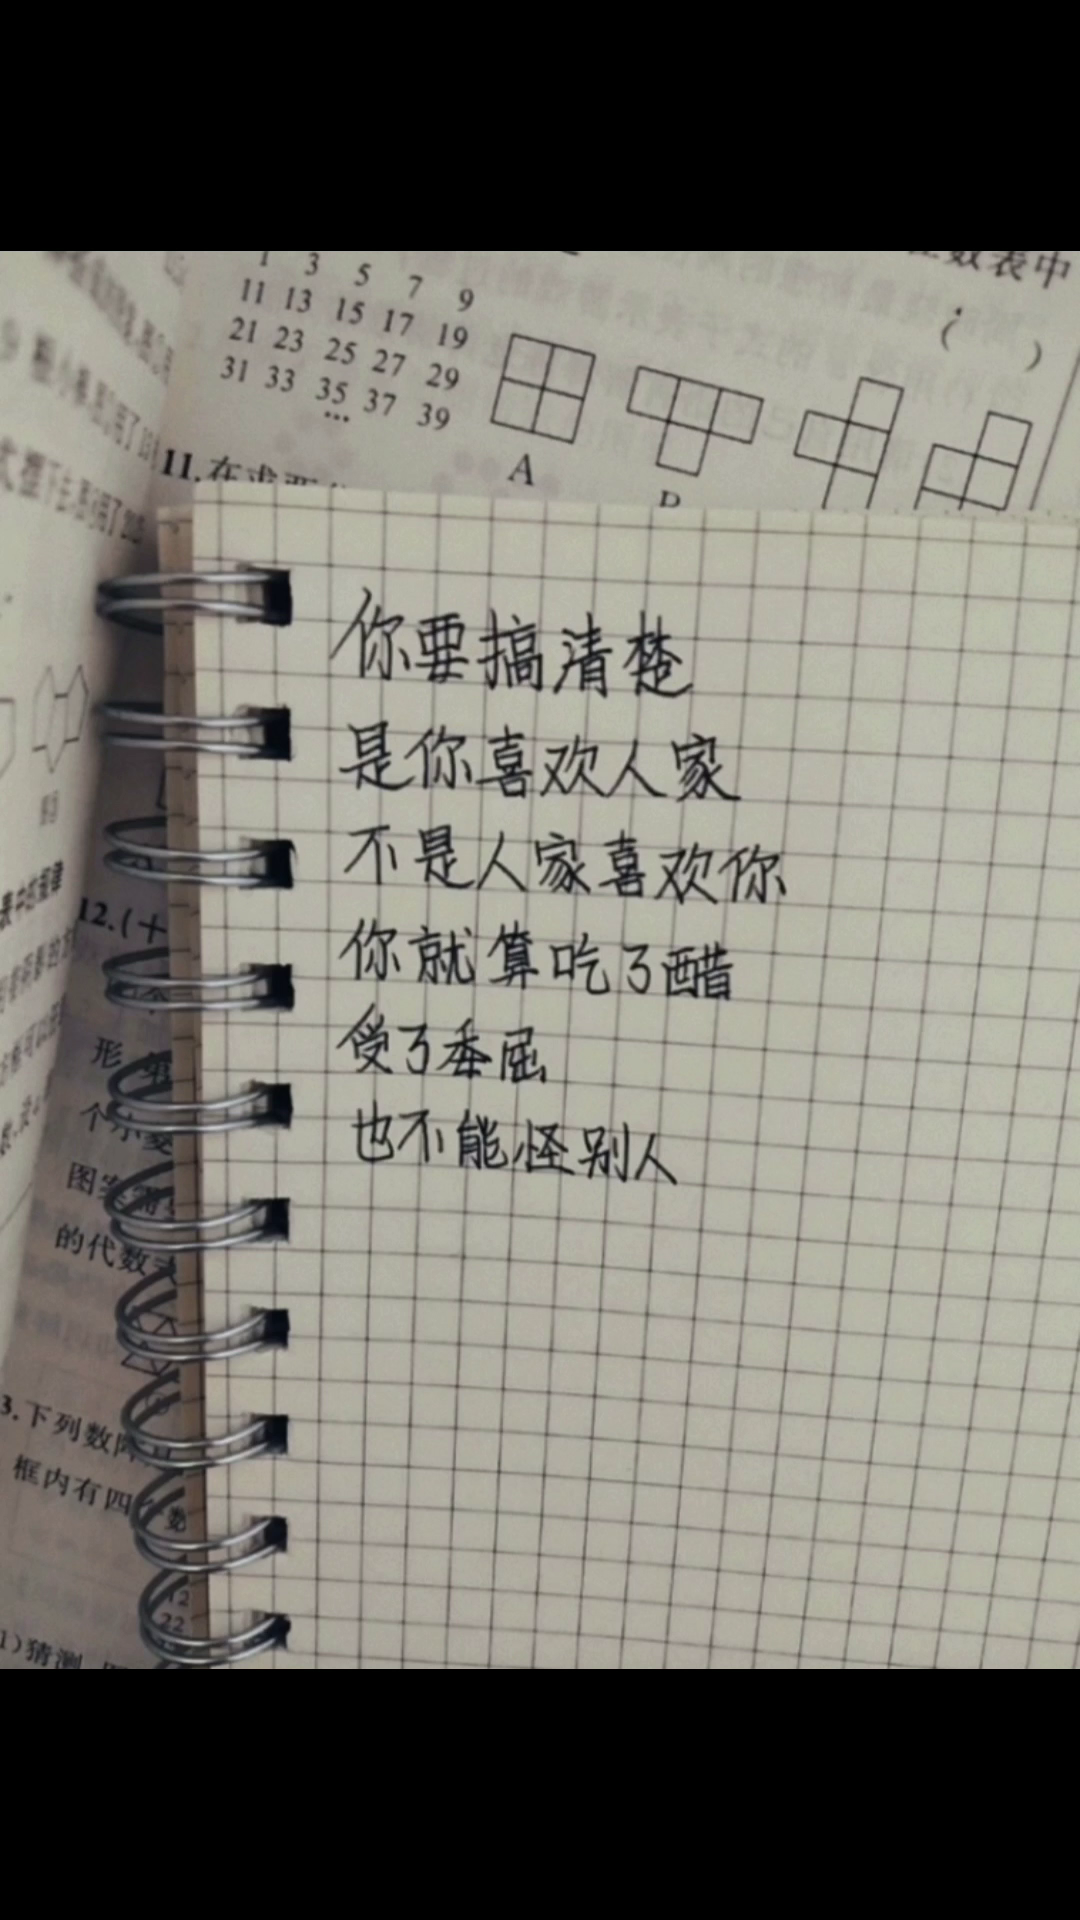 1 3 5 7 9
11 13 15 17 19
21 23 25 27 29
31 33 35 37 39
…
数表中
( )
A
11.在求两
你要搞清楚
是你喜欢人家
不是人家喜欢你
你就算吃了醋
受了委屈
也不能怪别人
12.(十
形
个小菱
图案需
的代数式
3.下列数阵
框内有四个数
12
22
1)猜测